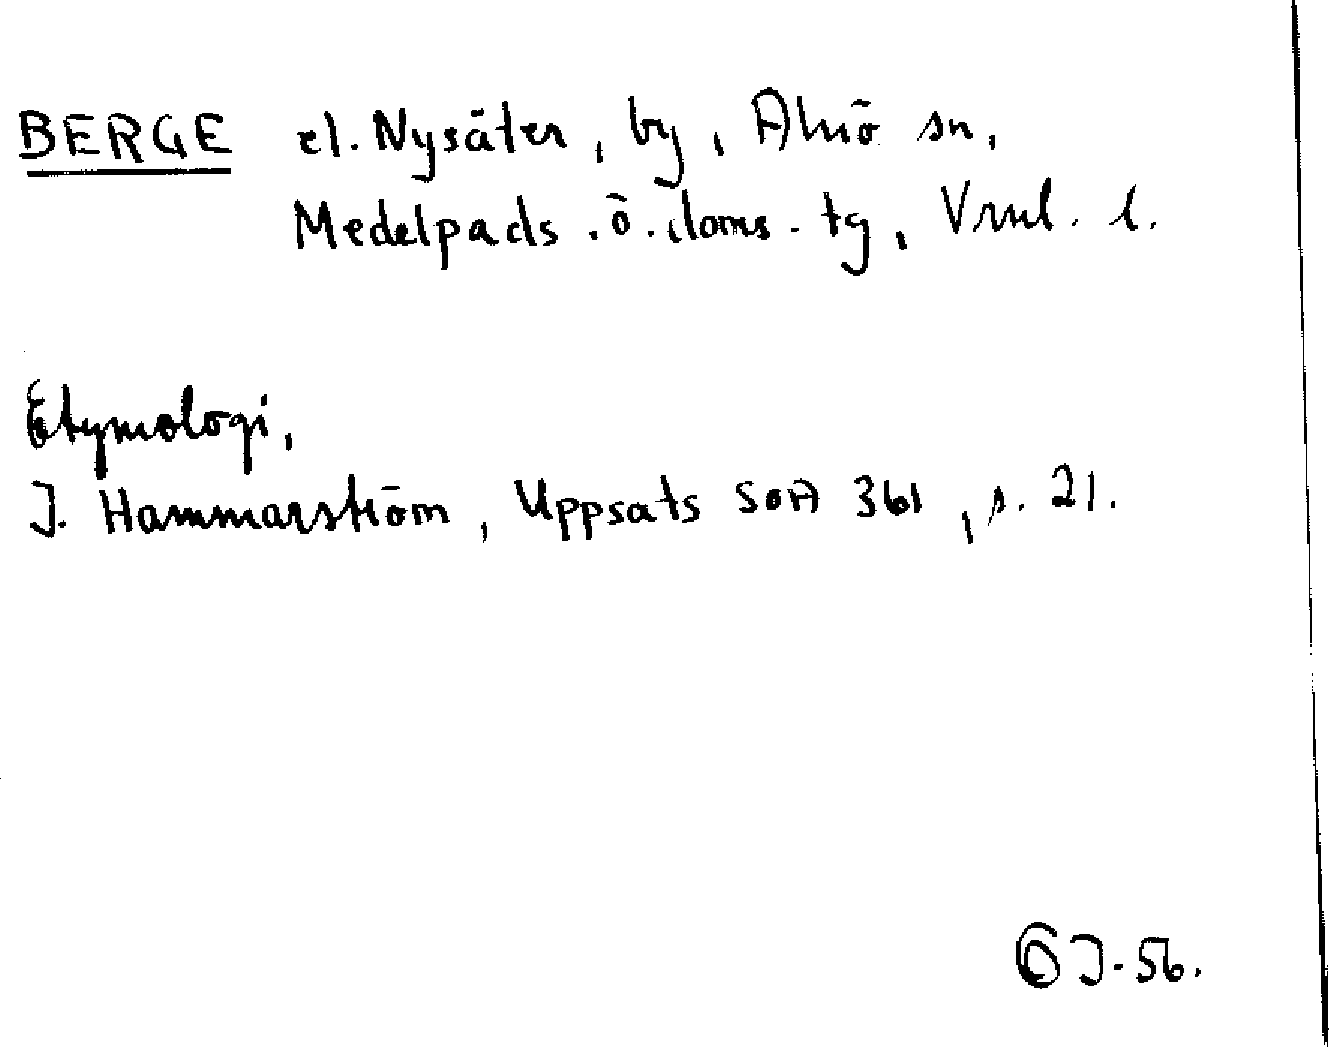 BERGE el. Nysäter, by, Alnö sn,
Medelpads .ö. doms. tg, Vrnl. l.
Etymologi,
J. Hammarström, Uppsats SOA 361, s. 21.
J-56.